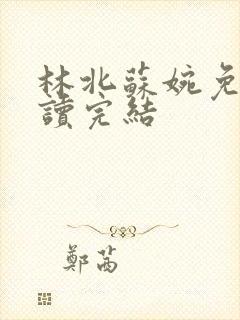 林北蘇婉免
讀完結
鄭茜